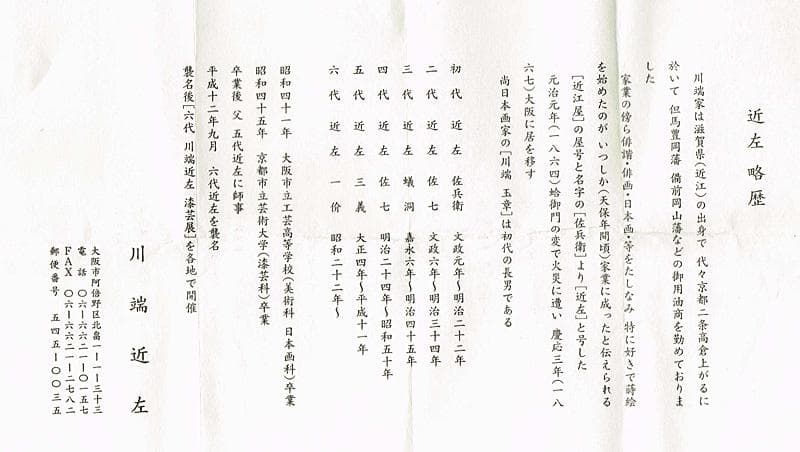 近左 略歴
川端家は滋賀県（近江）の出身で 代々京都二条高倉上がるに
於いて 但馬豊岡藩 備前岡山藩などの御用油商を勤めておりま
した
家業の傍ら俳諧・俳画・日本画・等をたしなみ 特に好きで蒔絵
を始めたのが いつしか（天保年間頃）家業に成ったと伝えられる
［近江屋］の屋号と名字の［佐兵衛］より［近左］と号した
元治元年（一八六四）蛤御門の変で火災に遭い 慶応三年（一八
六七）大阪に居を移す
尚日本画家の［川端 玉章］は初代の長男である
初代 近左 佐兵衛 文政元年～明治二十二年
二代 近左 佐七 文政六年～明治三十四年
三代 近左 蟻洞 嘉永六年～明治四十五年
四代 近左 佐七 明治二十四年～昭和五十年
五代 近左 三義 大正四年～平成十一年
六代 近左 一价 昭和二十二年～
昭和四十一年 大阪市立工芸高等学校（美術科 日本画科）卒業
昭和四十五年 京都市立芸術大学（漆芸科）卒業
卒業後 父 五代近左に師事
平成十二年九月 六代近左を襲名
襲名後［六代 川端近左 漆芸展］を各地で開催
川端近左
大阪市阿倍野区北畠一ー一ー三十三
電話 〇六ー六六二一ー〇一五七
ＦＡＸ 〇六ー六六二一ー二七八二
郵便番号 五四五ー〇〇三五